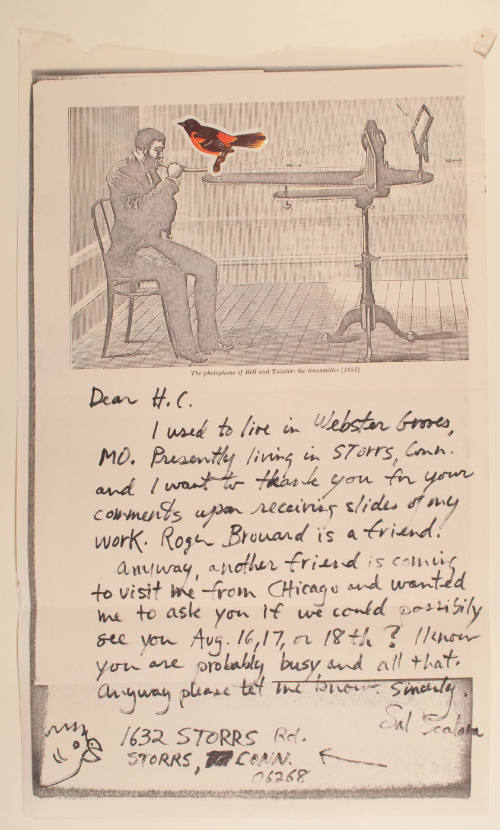 The photophone of Bell and Tainter: the transmitter [1881]
Dear H.C.
I used to live in Webster Groves,
MO. Presently living in STorrs, Conn.
and I want to thank you for your
comments upon receiving slides of my
work. Roger Brouard is a friend.
Anyway, another friend is coming
to visit me from CHicago and wanted
me to ask you if we could possibily
see you Aug. 16, 17, or 18th? I know
you are probably busy and all that.
Anyway please let me know. Sincerly,
Sal Scalora
1632 STORRS Rd.
STORRS, CONN.
06268